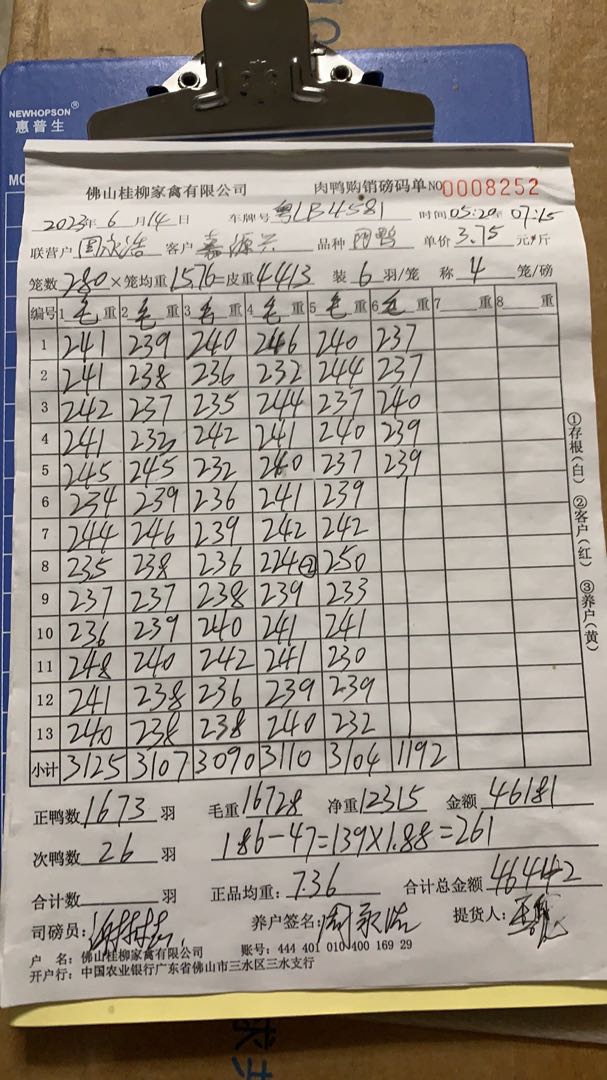 NEWHOPSON®
惠普生
佛山桂柳家禽有限公司 肉鸭购销磅码单 NO 0008252
2023年 6 月 14 日 车牌号 粤LB4581 时间 05:20至 07:15
联营户 周永浩 客户 嘉源兴 品种 肉鸭 单价 3.75 元/斤
笼数 280 ×笼均重 15.76 =皮重 4413 装 6 羽/笼 称 4 笼/磅
编号 1 毛 重 2 毛 重 3 毛 重 4 毛 重 5 毛 重 6 毛 重 7 重 8 重
1 241 239 240 246 240 237
2 241 238 236 232 244 237
3 242 237 235 244 237 240
4 241 232 242 241 240 239
5 245 245 232 240 237 239
6 234 239 236 241 239
7 244 246 239 242 242
8 235 238 236 224-② 250
9 237 237 238 239 233
10 236 239 240 241 241
11 248 240 242 241 230
12 241 238 236 239 239
13 240 238 238 240 232
小计 3125 3107 3090 3110 3104 1192
正鸭数 1673 羽 毛重 16728 净重 12315 金额 46181
次鸭数 26 羽 186-47=139×1.88=261
合计数 羽 正品均重: 7.36 合计总金额 46442
司磅员: 养户签名: 周永浩 提货人:
户 名: 佛山桂柳家禽有限公司 账号: 444 401 010 400 169 29
开户行: 中国农业银行广东省佛山市三水区三水支行
①存根(白) ②客户(红) ③养户(黄)